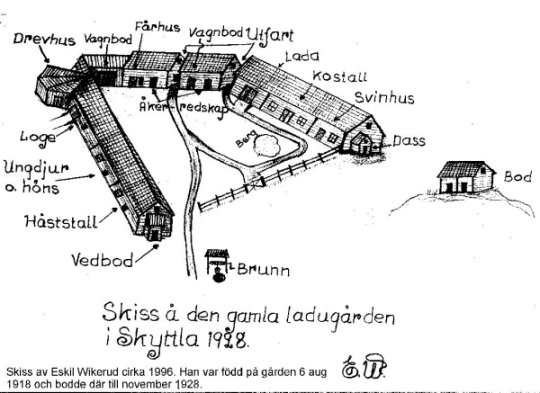 Drevhus
Vagnbod
Fårhus
Vagnbod
Utfart
Lada
Kostall
Svinhus
Åker-redskap
Berg
Dass
Loge
Ungdjur
o. höns
Häststall
Vedbod
Bod
Brunn
Skiss å den gamla ladugården
i Skyttla 1928.
E.W.
Skiss av Eskil Wikerud cirka 1996. Han var född på gården 6 aug
1918 och bodde där till november 1928.